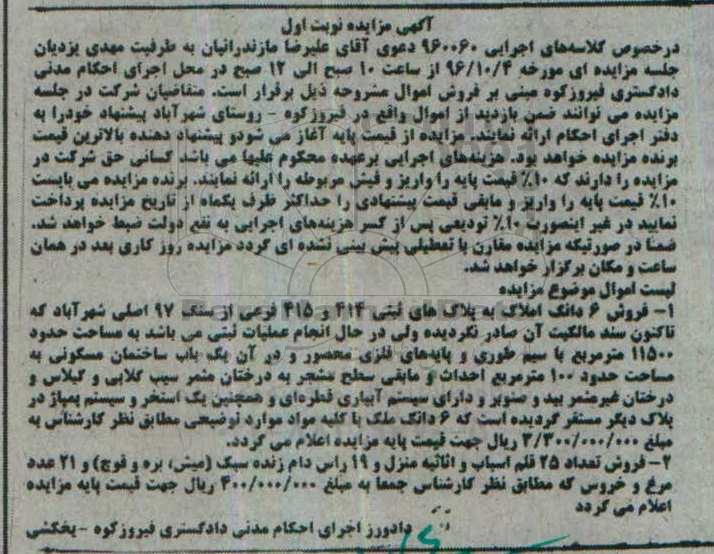 آگهی مزایده نوبت اول
درخصوص کلاسه‌های اجرایی ۹۶۰۰۶۰ دعوی آقای علیرضا مازندرانیان به طرفیت مهدی یزدیان
جلسه مزایده ای مورخه ۹۶/۱۰/۴ از ساعت ۱۰ صبح الی ۱۲ صبح در محل اجرای احکام مدنی
دادگستری فیروزکوه مبنی بر فروش اموال مشروحه ذیل برقرار است. متقاضیان شرکت در جلسه
مزایده می توانند ضمن بازدید از اموال واقع در فیروزکوه - روستای شهرآباد پیشنهاد خودرا به
دفتر اجرای احکام ارائه نمایند. مزایده از قیمت پایه آغاز می شودو پیشنهاد دهنده بالاترین قیمت
برنده مزایده خواهد بود. هزینه‌های اجرایی برعهده محکوم علیها می باشد کسانی حق شرکت در
مزایده را دارند که ۱۰٪ قیمت پایه را واریز و فیش مربوطه را ارائه نمایند. برنده مزایده می بایست
۱۰٪ قیمت پایه را واریز و مابقی قیمت پیشنهادی را حداکثر ظرف یکماه از تاریخ مزایده پرداخت
نمایید در غیر اینصورت ۱۰٪ تودیعی پس از کسر هزینه‌های اجرایی به نفع دولت ضبط خواهد شد.
ضمنا در صورتیکه مزایده مقارن با تعطیلی پیش بینی نشده ای گردد مزایده روز کاری بعد در همان
ساعت و مکان برگزار خواهد شد.
لیست اموال موضوع مزایده
۱- فروش ۶ دانگ املاک به پلاک های ثبتی ۴۱۴ و ۴۱۵ فرعی از سنگ ۹۷ اصلی شهرآباد که
تاکنون سند مالکیت آن صادر نگردیده ولی در حال انجام عملیات ثبتی می باشد به مساحت حدود
۱۱۵۰۰ مترمربع با سیم طوری و پایه‌های فلزی محصور و در آن یک باب ساختمان مسکونی به
مساحت حدود ۱۰۰ مترمربع احداث و مابقی سطح مشجر به درختان مثمر سیب گلابی و گیلاس و
درختان غیرمثمر بید و صنوبر و دارای سیستم آبیاری قطره‌ای و همچنین یک استخر و سیستم پمپاژ در
پلاک دیگر مستقر گردیده است که ۶ دانگ ملک با کلیه مواد موارد توضیحی مطابق نظر کارشناس به
مبلغ ۳/۳۰۰/۰۰۰/۰۰۰ ریال جهت قیمت پایه مزایده اعلام می گردد.
۲- فروش تعداد ۲۵ قلم اسباب و اثاثیه منزل و ۱۹ راس دام زنده سبک (میش، بره و قوچ) و ۲۱ عدد
مرغ و خروس که مطابق نظر کارشناس جمعا به مبلغ ۴۰۰/۰۰۰/۰۰۰ ریال جهت قیمت پایه مزایده
اعلام می گردد
دادورز اجرای احکام مدنی دادگستری فیروزکوه - یخکشی